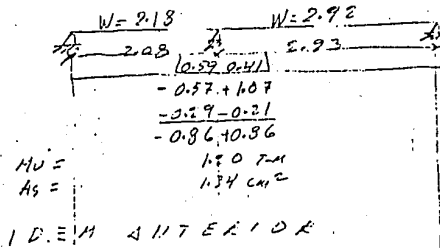 W= 2.13 W= 2.92
2.08 2.93
0.59 0.41
- 0.57 + 1.07
- 0.29 - 0.21
- 0.86 + 0.86
Mu = 1.20 T-M
As = 1.34 cm²
IDEM ANTERIOR